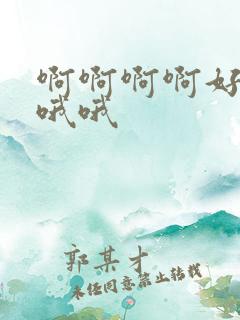 啊啊啊啊好
哦哦
郭某才
未经同意禁止转载